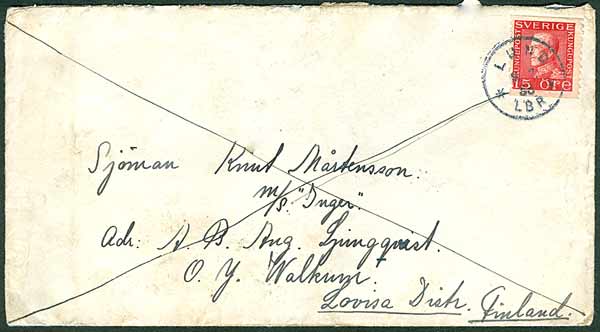 SVERIGE
KUNGL POST
KUNGL POST
15 ÖRE
LUND
LBR
Sjöman Knut Mårtensson.
m/s. "Inger".
Adr. A. B. Aug. Ljungqvist.
O. Y. Walkum.
Lovisa Distr. Finland.